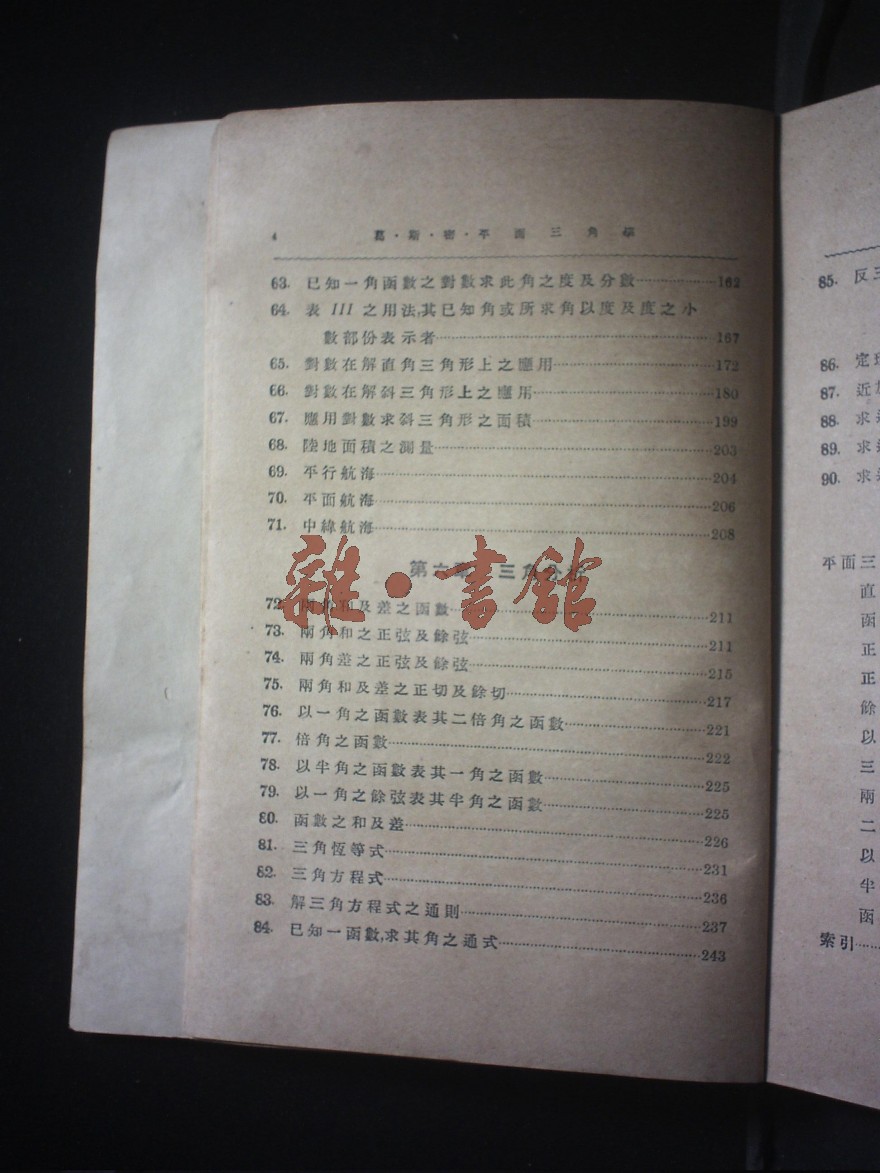 4 葛·斯·密·平面三角學
63. 已知一角函數之對數求此角之度及分數 162
64. 表 III 之用法,其已知角或所求角以度及度之小
數部份表示者 167
65. 對數在解直角三角形上之應用 172
66. 對數在解斜三角形上之應用 180
67. 應用對數求斜三角形之面積 199
68. 陸地面積之測量 203
69. 平行航海 204
70. 平面航海 206
71. 中緯航海 208
第六章 三角分析
72. 兩角和及差之函數 211
73. 兩角和之正弦及餘弦 211
74. 兩角差之正弦及餘弦 215
75. 兩角和及差之正切及餘切 217
76. 以一角之函數表其二倍角之函數 221
77. 倍角之函數 222
78. 以半角之函數表其一角之函數 225
79. 以一角之餘弦表其半角之函數 225
80. 函數之和及差 226
81. 三角恆等式 231
82. 三角方程式 236
83. 解三角方程式之通則 237
84. 已知一函數,求其角之通式 243
雜·書館
85. 反三
86. 定
87. 近
88. 求
89. 求
90. 求
平面三
直
函
正
正
餘
以
三
兩
二
以
半
函
索引